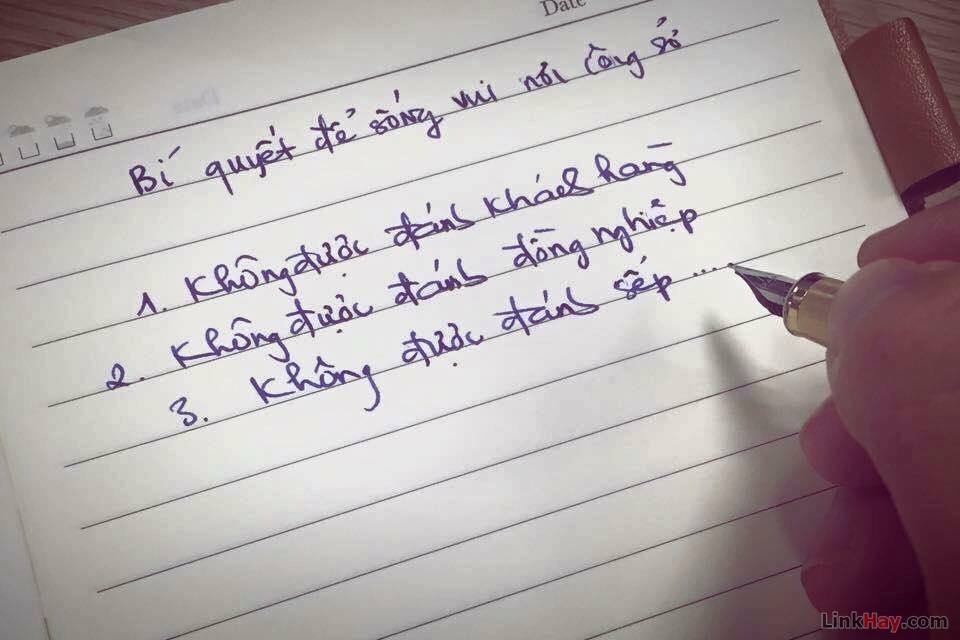 Date
Bí quyết để sống vui nơi công sở
1. Không được đánh khách hàng
2. Không được đánh đồng nghiệp
3. Không được đánh sếp ....
LinkHay.com